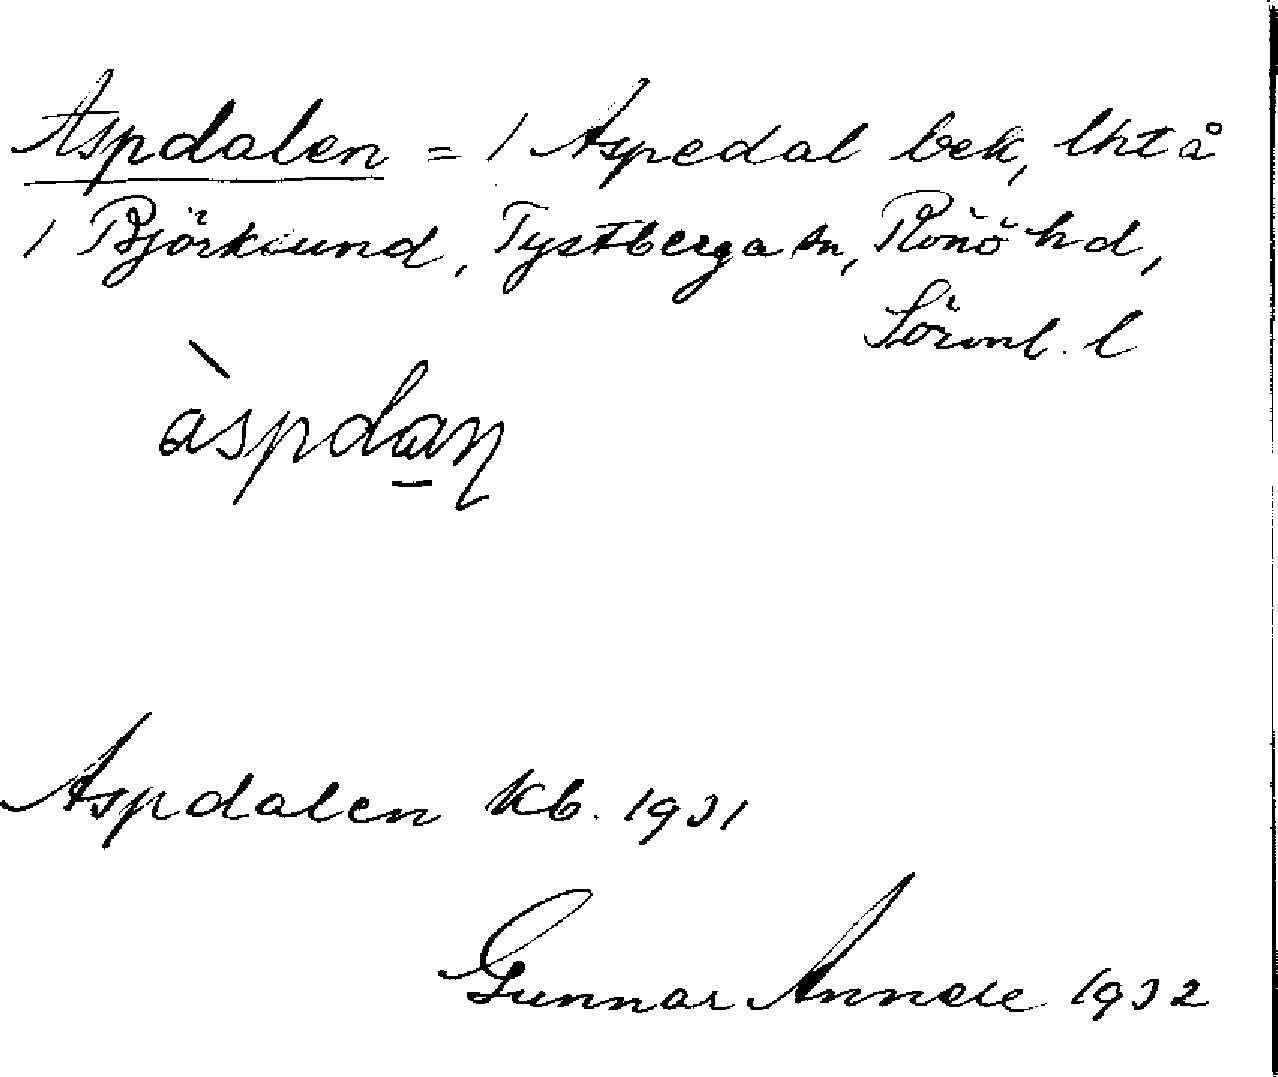 Aspdalen = / Aspedal bek, lht å
/ Björklund, Tystberga sn, Rönö hd,
Sörml. l
àspdan
Aspdalen kb. 1931
Gunnar Annell 1932